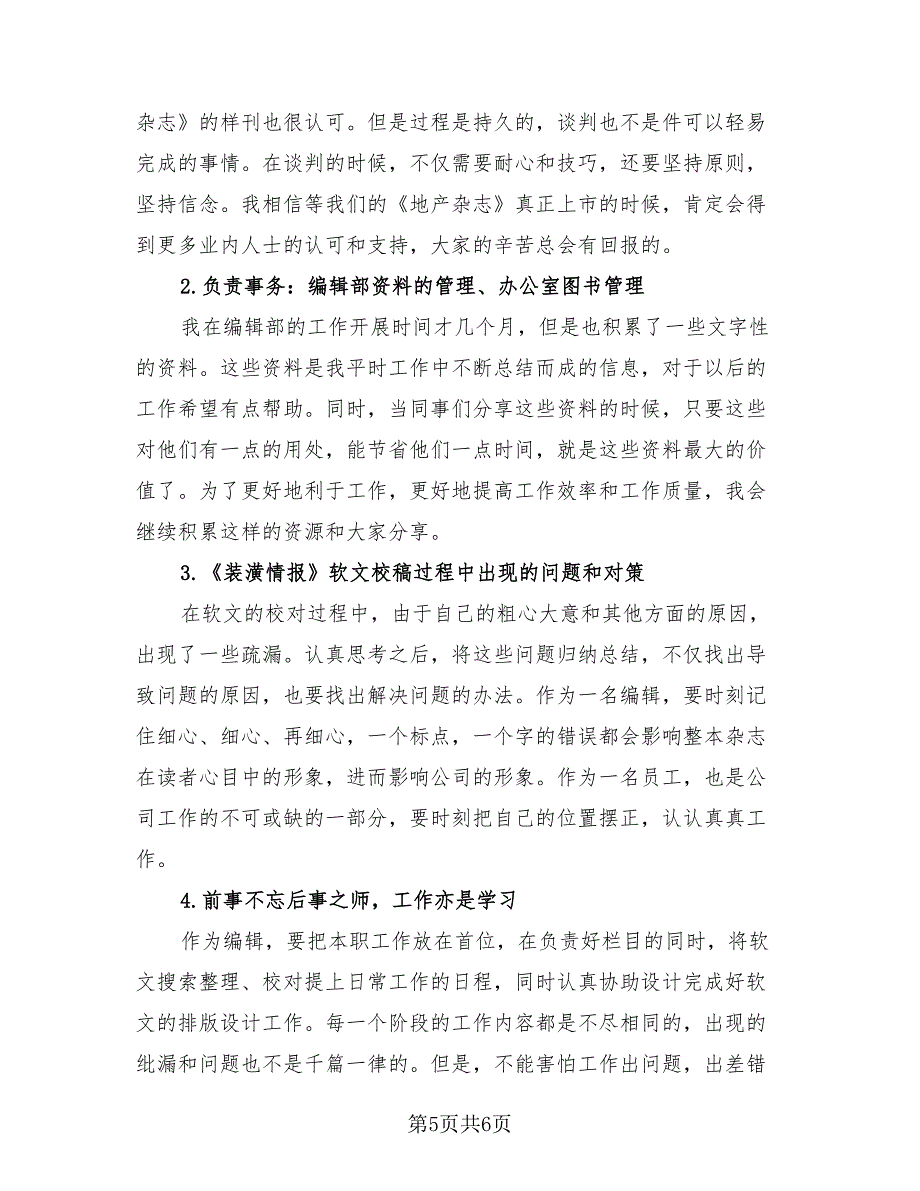 杂志》的样刊也很认可。但是过程是持久的，谈判也不是件可以轻易
完成的事情。在谈判的时候，不仅需要耐心和技巧，还要坚持原则，
坚持信念。我相信等我们的《地产杂志》真正上市的时候，肯定会得
到更多业内人士的认可和支持，大家的辛苦总会有回报的。
2.负责事务：编辑部资料的管理、办公室图书管理
我在编辑部的工作开展时间才几个月，但是也积累了一些文字性
的资料。这些资料是我平时工作中不断总结而成的信息，对于以后的
工作希望有点帮助。同时，当同事们分享这些资料的时候，只要这些
对他们有一点的用处，能节省他们一点时间，就是这些资料最大的价
值了。为了更好地利于工作，更好地提高工作效率和工作质量，我会
继续积累这样的资源和大家分享。
3.《装潢情报》软文校稿过程中出现的问题和对策
在软文的校对过程中，由于自己的粗心大意和其他方面的原因，
出现了一些疏漏。认真思考之后，将这些问题归纳总结，不仅找出导
致问题的原因，也要找出解决问题的办法。作为一名编辑，要时刻记
住细心、细心、再细心，一个标点，一个字的错误都会影响整本杂志
在读者心目中的形象，进而影响公司的形象。作为一名员工，也是公
司工作的不可或缺的一部分，要时刻把自己的位置摆正，认认真真工
作。
4.前事不忘后事之师，工作亦是学习
作为编辑，要把本职工作放在首位，在负责好栏目的同时，将软
文搜索整理、校对提上日常工作的日程，同时认真协助设计完成好软
文的排版设计工作。每一个阶段的工作内容都是不尽相同的，出现的
纰漏和问题也不是千篇一律的。但是，不能害怕工作出问题，出差错
第5页共6页